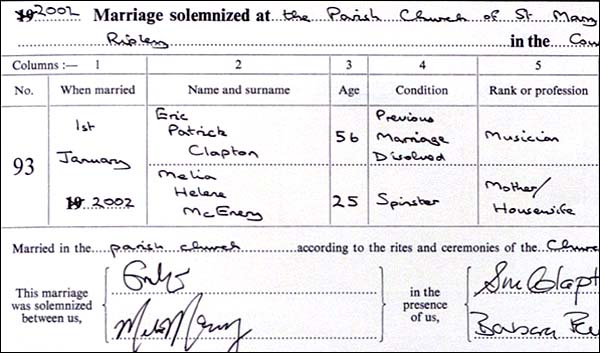 19 2002 Marriage solemnized at the Parish Church of St Mary
Ripley in the
Columns :— 1 2 3 4 5
No. When married Name and surname Age Condition Rank or profession
93
1st
January
19 2002
Eric
Patrick
Clapton
56
Previous
Marriage
Disolved
Musician
Melia
Helene
McEnery
25
Spinster
Mother/
Housewife
Married in the parish church according to the rites and ceremonies of the
This marriage
was solemnized
between us,
in the
presence
of us,
Barbara